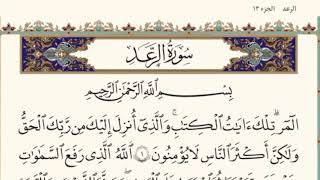 الرعد الجزء ١٣
سُورَةُ الرَّعْدِ
بِسْمِ ٱللَّهِ ٱلرَّحْمَٰنِ ٱلرَّحِيمِ
الٓمٓرۚ تِلْكَ ءَايَٰتُ ٱلْكِتَٰبِۗ وَٱلَّذِىٓ أُنزِلَ إِلَيْكَ مِن رَّبِّكَ ٱلْحَقُّ
وَلَٰكِنَّ أَكْثَرَ ٱلنَّاسِ لَا يُؤْمِنُونَ ١ ٱللَّهُ ٱلَّذِى رَفَعَ ٱلسَّمَٰوَٰتِ